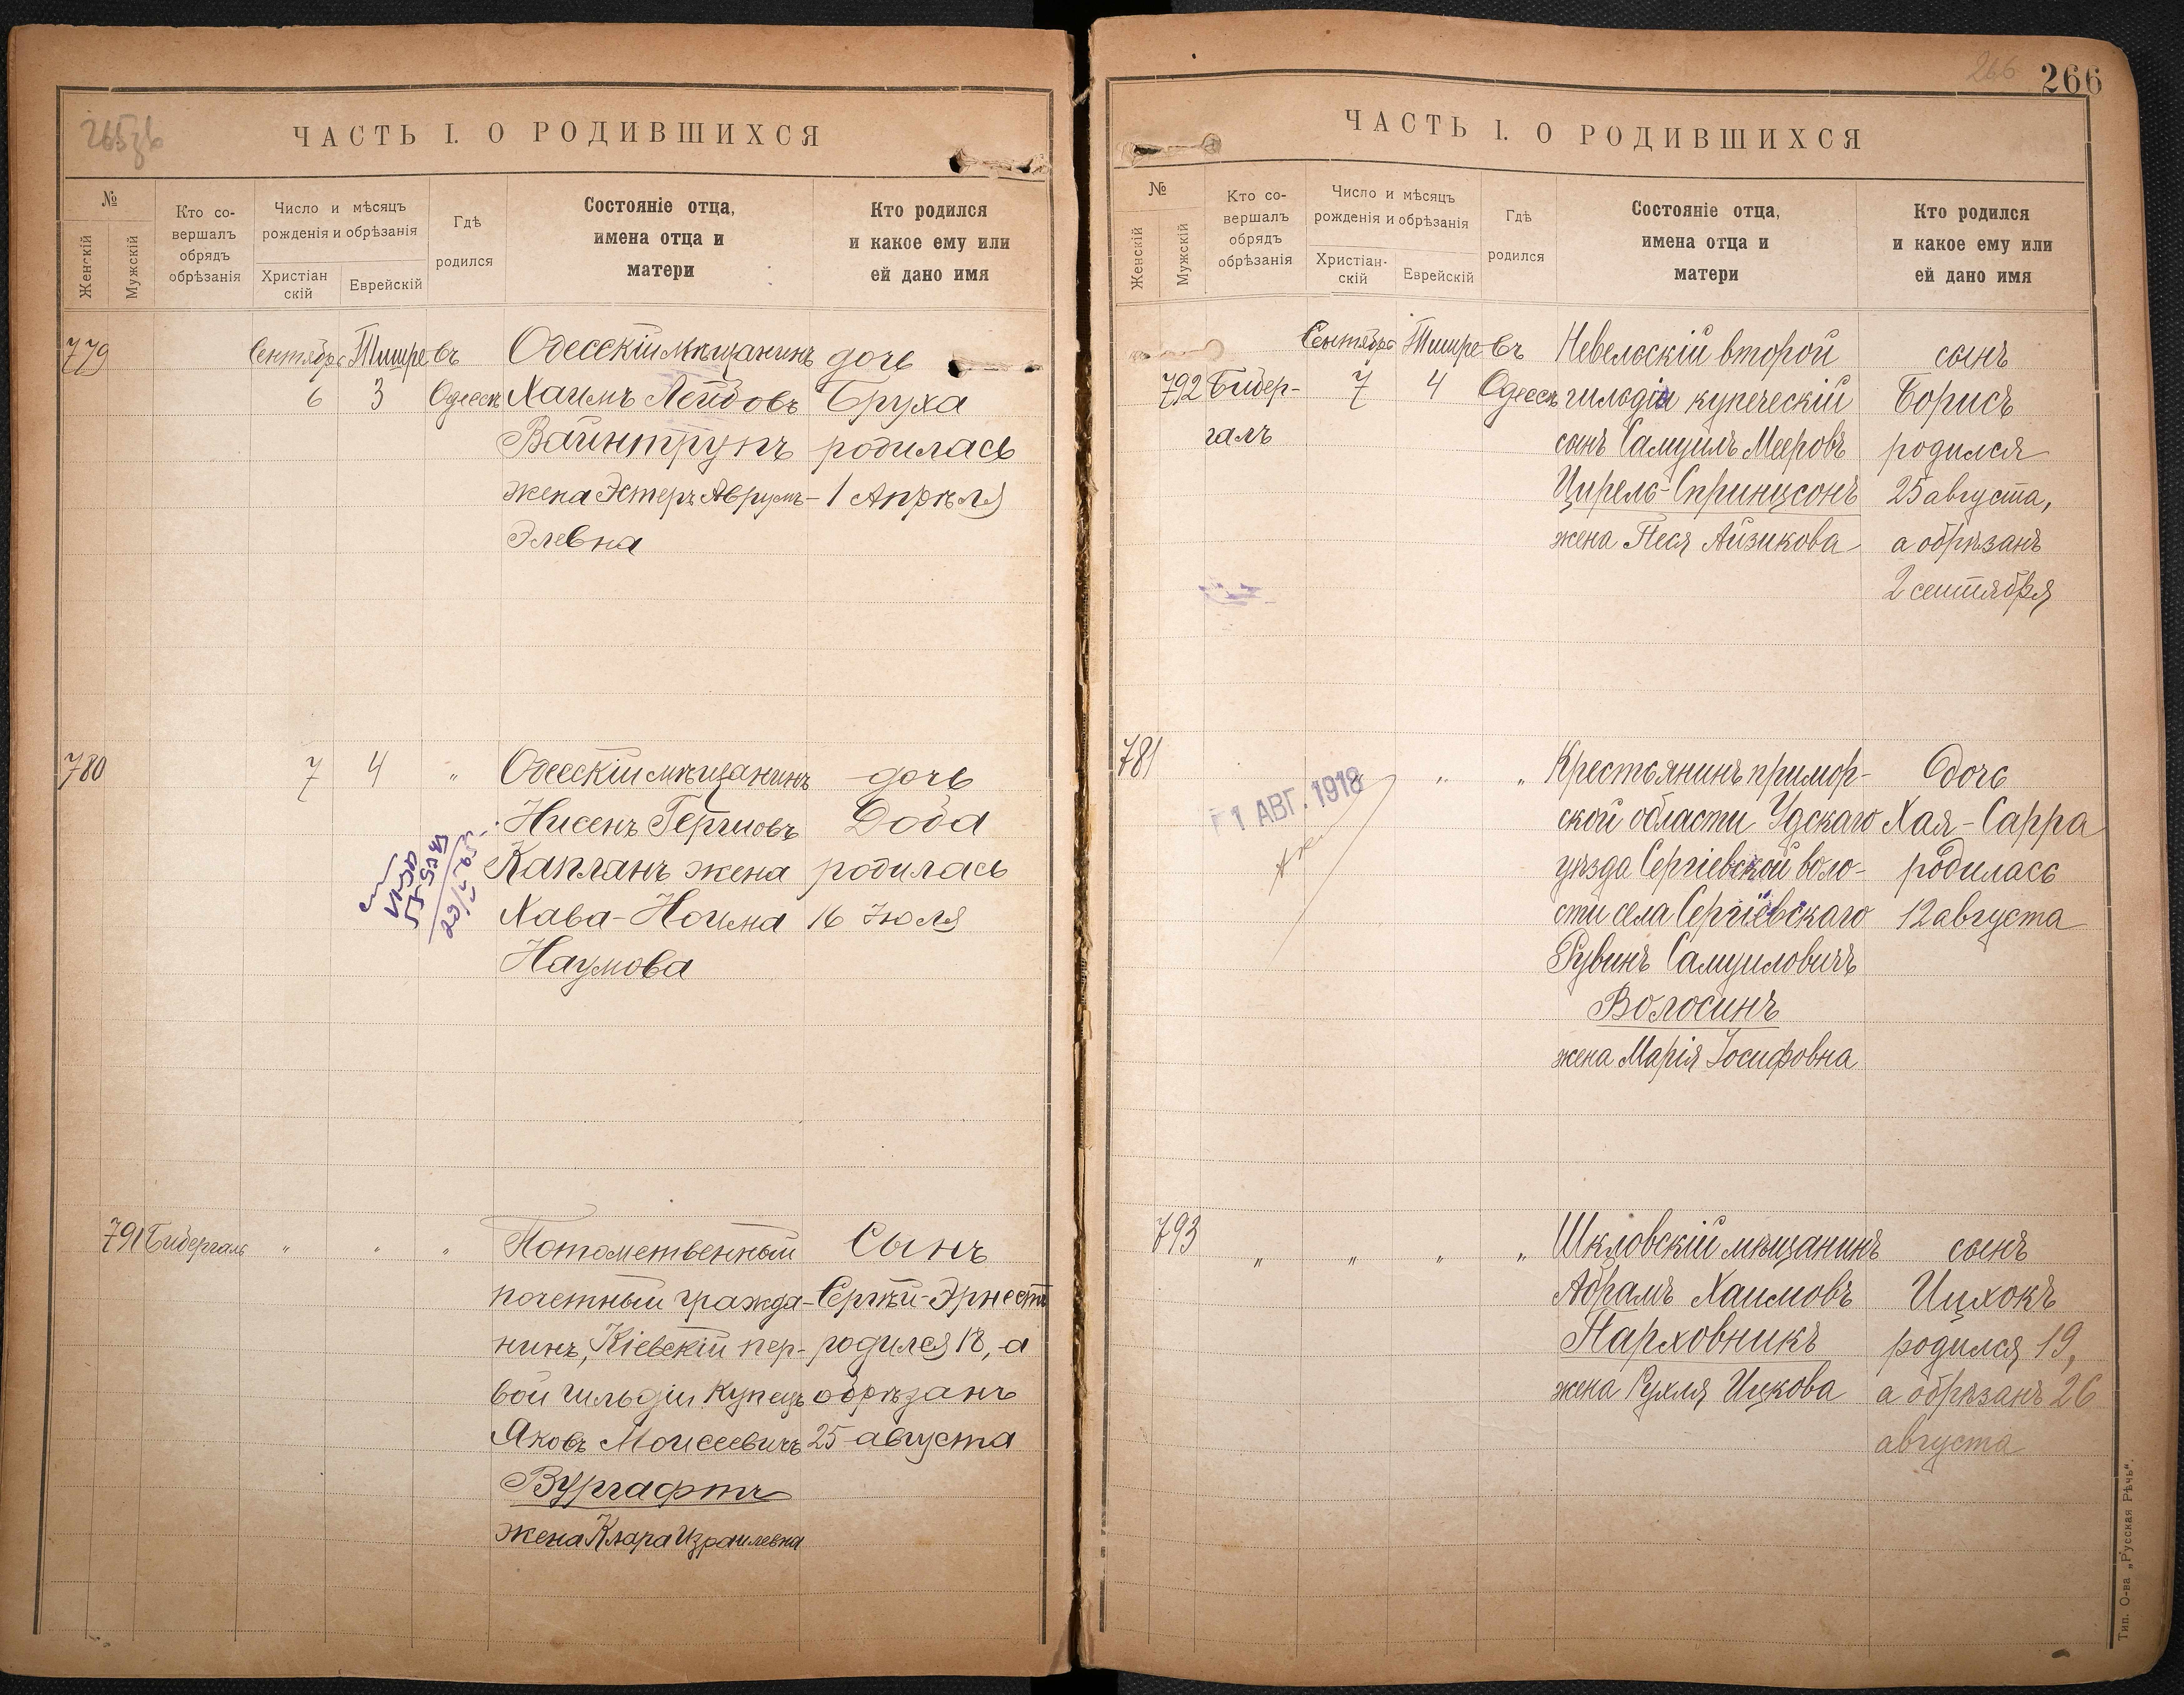 265зв
ЧАСТЬ I. О РОДИВШИХСЯ
№
Женскій
Мужскій
Кто со-
вершалъ
обрядъ
обрѣзанія
Число и мѣсяцъ
рожденія и обрѣзанія
Христіан
скій
Еврейскій
Гдѣ
родился
Состояніе отца,
имена отца и
матери
Кто родился
и какое ему или
ей дано имя
779 Сентября Тишре въ Одесскій мѣщанинъ дочь
6 3 Одессѣ Хаимъ Лейбовъ Бруха
Вайнтрупъ родилась
жена Эстеръ Аврумъ- 1 Апрѣля
Элевна
780 7 4 " Одесскій мѣщанинъ дочь
Нисенъ Гершовъ Доба
Капланъ жена родилась
Хава-Ноима 16 Іюля
Наумова
791 Бидергаль " " " Потомственный Сынъ
почетный гражда- Сергѣй-Эрнестъ
нинъ, Кіевскій пер- родился 18, а
вой гильдіи купецъ обрѣзанъ
Яковъ Моисеевичъ 25 августа
Вургафтъ
жена Клара Израилевна
266
266
ЧАСТЬ I. О РОДИВШИХСЯ
№
Женскій
Мужскій
Кто со-
вершалъ
обрядъ
обрѣзанія
Число и мѣсяцъ
рожденія и обрѣзанія
Христіан-
скій
Еврейскій
Гдѣ
родился
Состояніе отца,
имена отца и
матери
Кто родился
и какое ему или
ей дано имя
Сентября Тишре въ Невельскій второй сынъ
792 Бидер- 7 4 Одессѣ гильдіи купеческій Борисъ
галъ сынъ Самуилъ Мееровъ родился
Цирель-Спринцсонъ 25 августа,
жена Песя Айзикова а обрѣзанъ
2 сентября
781 " " " Крестьянинъ примор- Дочь
1 АВГ. 1918
ской области Удскаго Хая-Сарра
уѣзда Сергіевской воло- родилась
сти села Сергіевскаго 12 августа
Рувинъ Самуиловичъ
Волосинъ
жена Марія Іосифовна
793 " " " " Шкловскій мѣщанинъ сынъ
Абрамъ Хаимовъ Ицхокъ
Парховникъ родился 19,
жена Рухля Ицкова а обрѣзанъ 26
августа
Тип. О-ва „Русская Рѣчь".